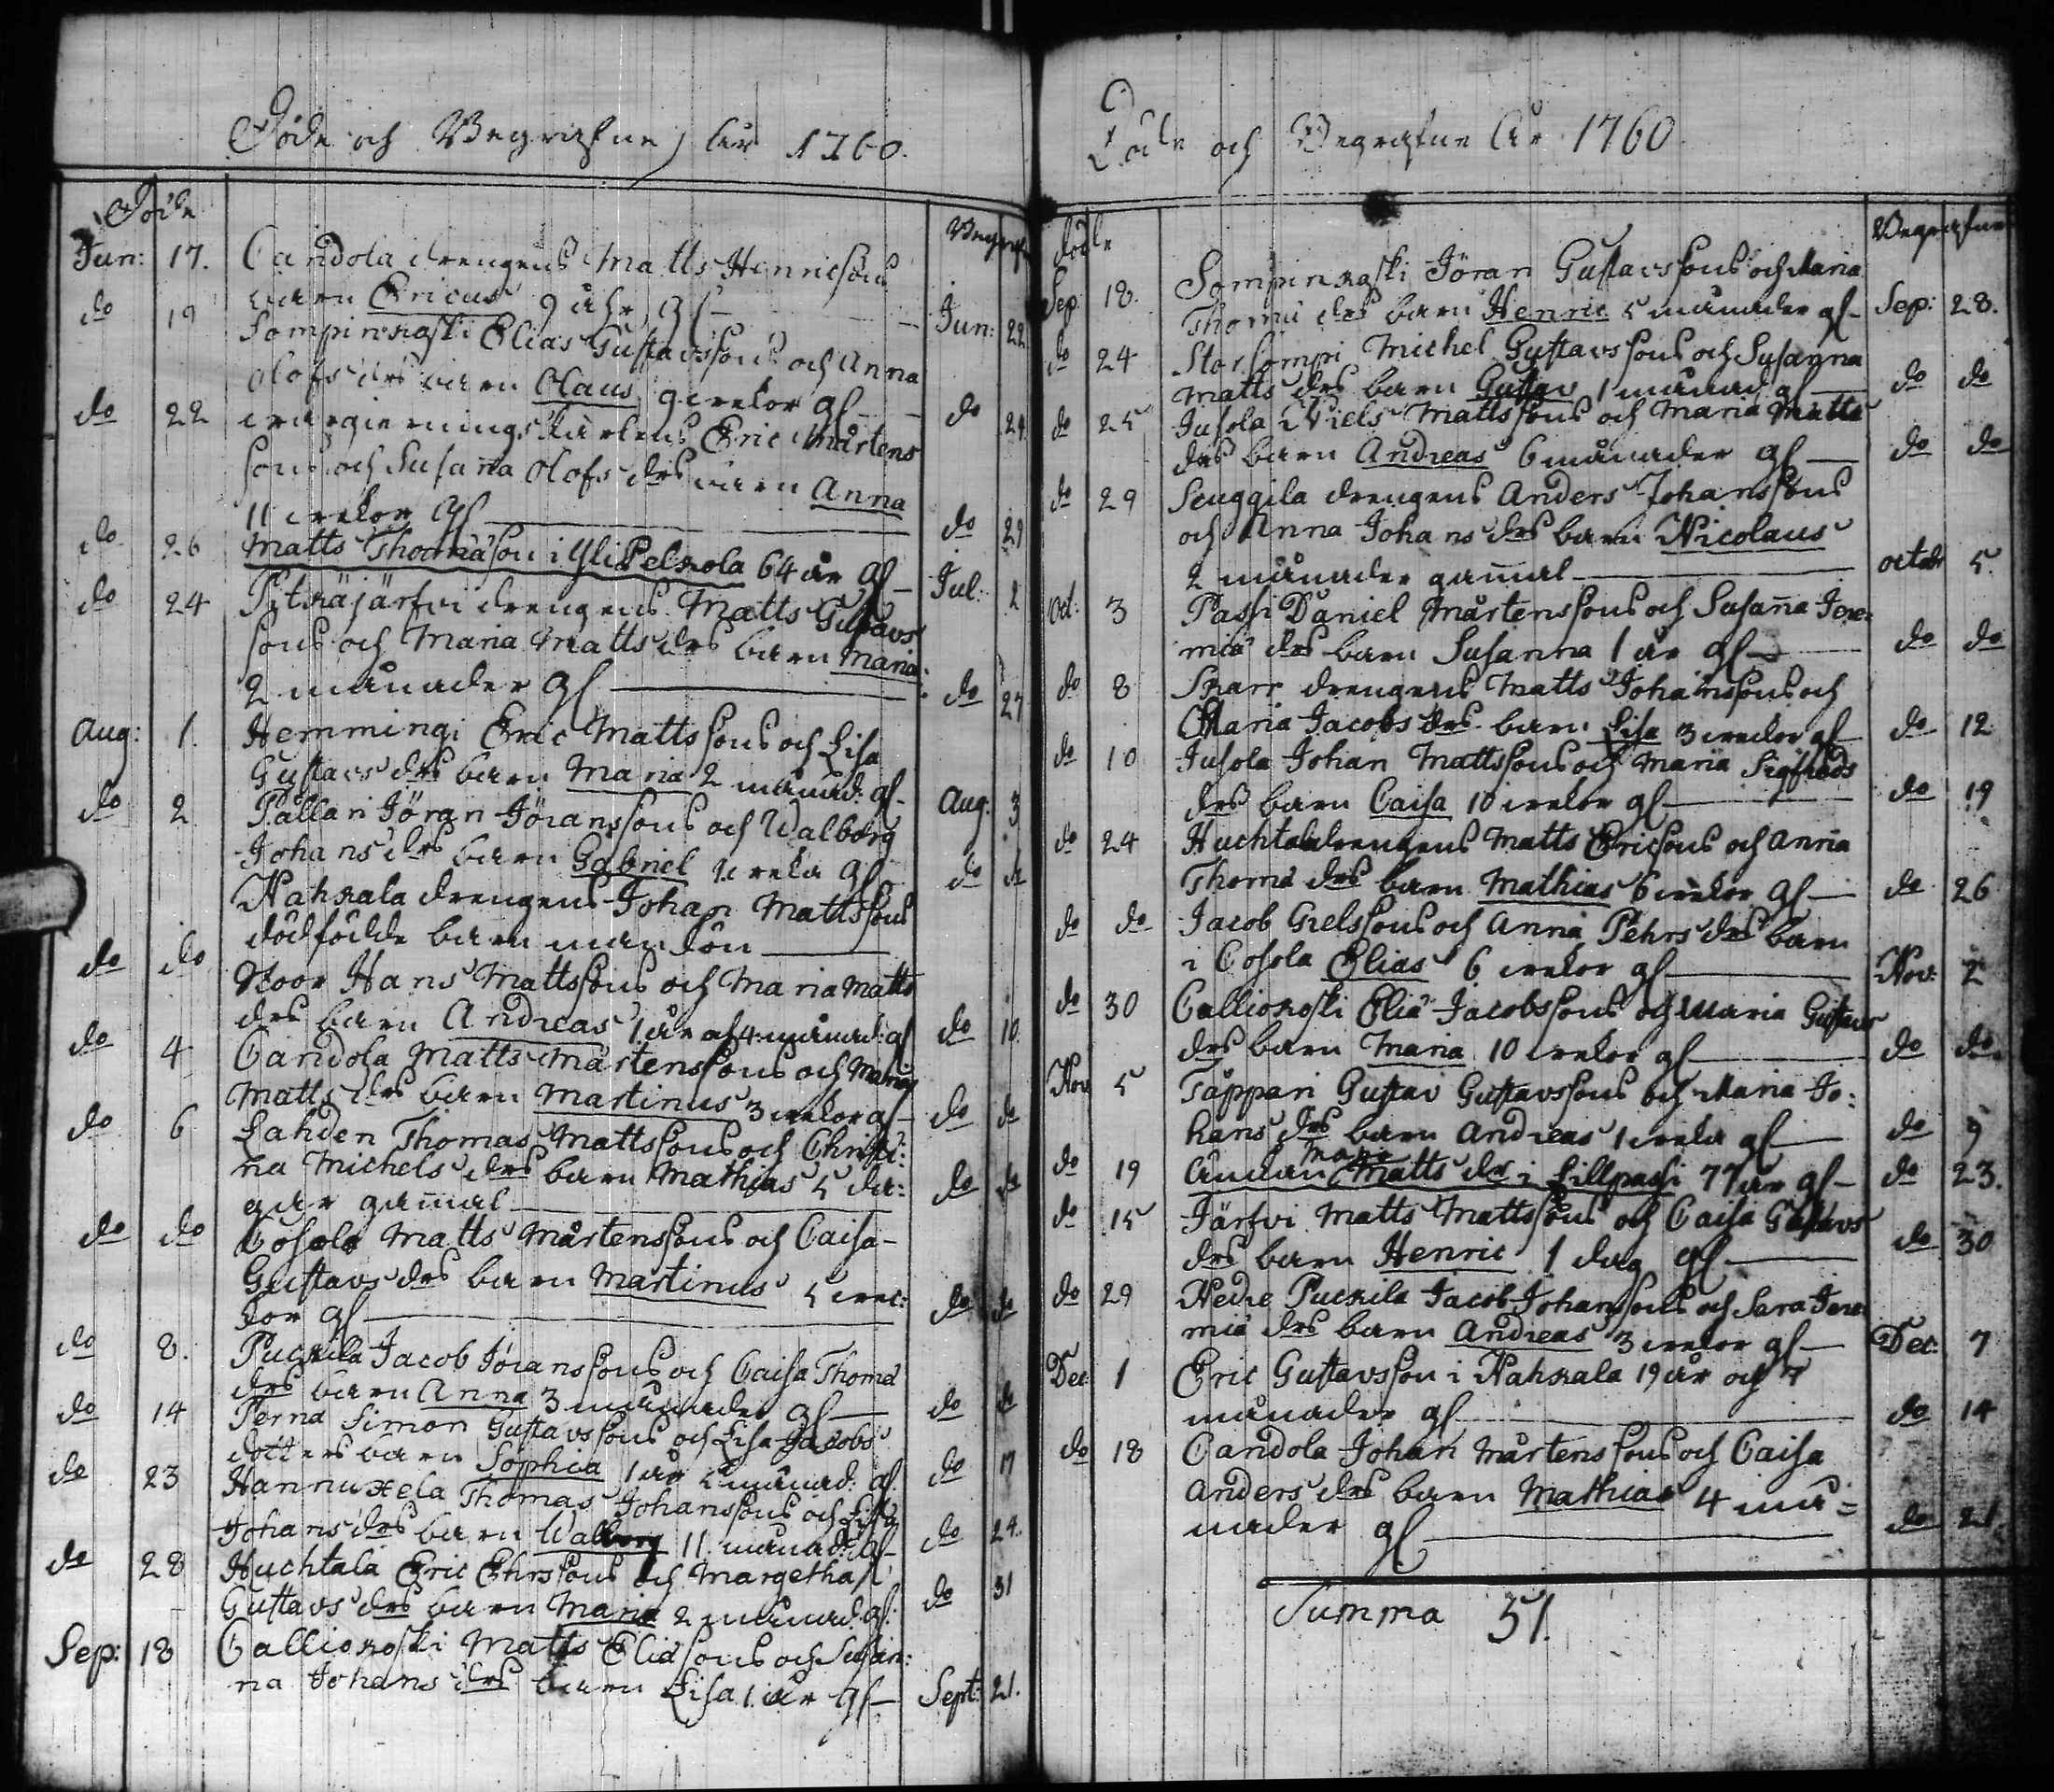 Döde och Begrafne åhr 1760.
Döde
Begrafne
Jun: 17. Candola drengens Matts Henricsons
barn Ericus 9 åhr gl— Jun: 22
do 19 Sompinkoski Elias Gustavssons och Anna
Olofs drs barn Olaus 9 wekor gl— do 29
do 22 Eric Mårtens
sons och Susanna Olofs drs barn Anna
11 wekor gl— do 29
do 26 Matts Thomæson i Ylipelkola 64 år gl— Jul: 2
do 24 Pytkäjärfvi drengens Matts Gustavs
sons och Maria Matts drs barn Maria
2 månader gl— do 27
Aug: 1. Hemmingi Eric Mattssons och Lisa
Gustavs drs barn Maria 2 månad: gl— Aug: 3
do 2 Pållari Jöran Jöranssons och Walborg
Johans drs barn Gabriel 1 weka gl do do
Nahkala drengens Johan Mattssons
dödfödde barn mankön—
do do Noor Hans Mattssons och Maria Matts
drs barn Andreas 1 år 4 månad: gl do 10.
do 4 Candola Matts Mårtenssons och Maria
Matts drs barn Martinus 3 wekor gl— do do
do 6 Lahden Thomas Mattssons och Christi:
na Michels drs barn Mathias 5 da:
gar gamal— do do
do do Cosola Matts Mårtenssons och Caisa
Gustavs drs barn Martinus 5 wec:
kor gl— do do
do 8. Puckila Jacob Jöranssons och Caisa Thomæ
drs barn Anna 3 månader gl— do do
do 14 Pernä Simon Gustavssons och Lisa Jacobs
dotters barn Sophia 1 år 5 månad: gl. do 17
do 23 Hannuxela Thomas Johanssons och Lisa
Johans drs barn Walborg 11 månad: gl— do 24.
do 28 Huchtala Eric Ehrssons och Margetha
Gustavs drs barn Maria 2 månad: gl: do 31
Sep: 18 Calliokoski Matts Eliæsons och Susan:
na Johans drs barn Lisa 1 år gl— Sept: 21.
Döde och Begrafne År 1760
Döde
Begrafne
Sep: 18. Sompinkoski Jöran Gustavssons och Maria
Thomæ drs barn Henric 5 månader gl— Sep: 28.
do 24 Storsompi Michel Gustavssons och Susanna
Matts drs barn Gustav 1 månad gl— do do
do 25 Jusola Niels Mattssons och Maria Matts
drs barn Andreas 6 månader gl— do do
do 29 Scuggila drengens Anders Johanssons
och Anna Johans drs barn Nicolaus
2 månader gamal— octob: 5.
oct: 3 Passi Daniel Mårtenssons och Susanna Jere:
miæ drs barn Susanna 1 år gl— do do
do 8 Skarr drengens Matts Johanssons och
Maria Jacobs drs barn Lisa 3 wekor gl do 12
do 10 Jusola Johan Mattssons och Maria Sigfrids
drs barn Caisa 10 wekor gl— do 19
do 24 Huchtala drengens Matts Ericsons och Anna
Thomæ drs barn Mathias 6 wekor gl— do 26
do do Jacob Grelssons och Anna Pehrs drs barn
i Cosola Elias 6 wekor gl— Nov: 2
do 30 Calliokoski Eliæ Jacobssons och Maria Gustavs
drs barn Maria 10 wekor gl— do do
Nov 5 Tåppari Gustav Gustavssons och Maria Jo:
hans drs barn Andreas 1 weka gl— do 9
do 19 Enkan Maria Matts dr i Lillpassi 77 år gl— do 23.
do 15 Järfvi Matts Mattssons och Caisa Gustavs
drs barn Henric 1 dag gl— do 30
do 29 Nedre Puckila Jacob Johanssons och Sara Jere
miæ drs barn Andreas 3 wekor gl— Dec: 7
Dec: 1 Eric Gustavsson i Nahkala 19 år och 7
månader gl— do 14
do 18 Candola Johan Mårtenssons och Caisa
Anders drs barn Mathias 4 må=
nader gl— do 21
Summa 51.